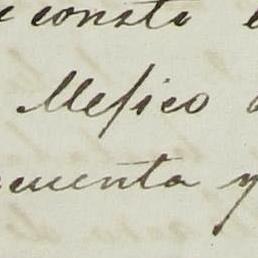 consta
Mefico
cuenta y